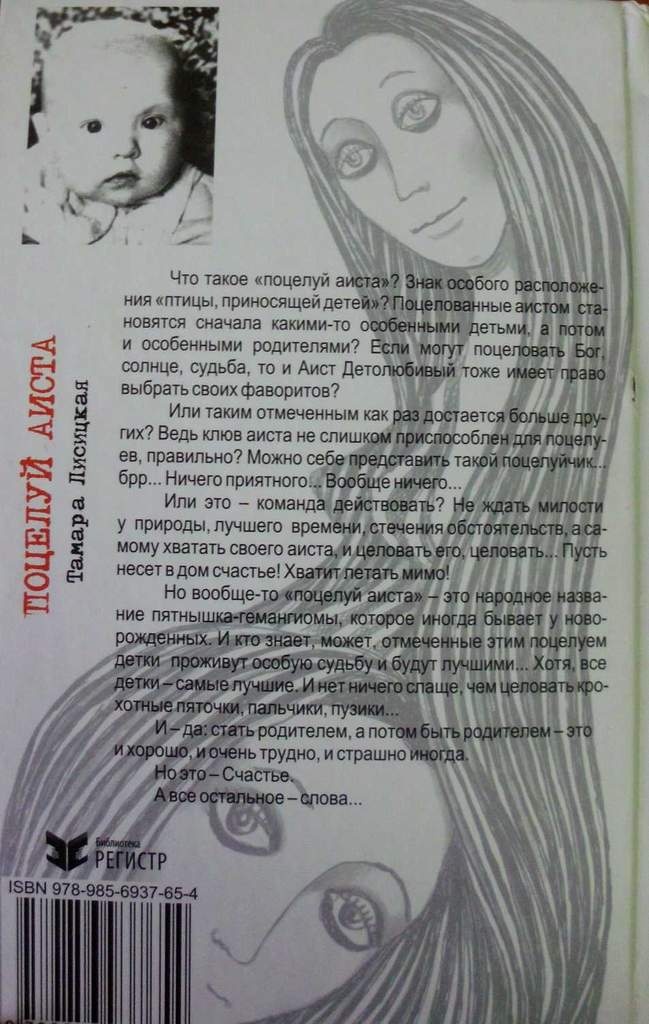 ПОЦЕЛУЙ АИСТА
Тамара Лисицкая
Что такое «поцелуй аиста»? Знак особого расположе-
ния «птицы, приносящей детей»? Поцелованные аистом ста-
новятся сначала какими-то особенными детьми, а потом
и особенными родителями? Если могут поцеловать Бог,
солнце, судьба, то и Аист Детолюбивый тоже имеет право
выбрать своих фаворитов?
Или таким отмеченным как раз достается больше дру-
гих? Ведь клюв аиста не слишком приспособлен для поцелу-
ев, правильно? Можно себе представить такой поцелуйчик...
брр... Ничего приятного... Вообще ничего...
Или это – команда действовать? Не ждать милости
у природы, лучшего времени, стечения обстоятельств, а са-
мому хватать своего аиста, и целовать его, целовать... Пусть
несет в дом счастье! Хватит летать мимо!
Но вообще-то «поцелуй аиста» – это народное назва-
ние пятнышка-гемангиомы, которое иногда бывает у ново-
рожденных. И кто знает, может, отмеченные этим поцелуем
детки проживут особую судьбу и будут лучшими... Хотя, все
детки – самые лучшие. И нет ничего слаще, чем целовать кро-
хотные пяточки, пальчики, пузики...
И – да: стать родителем, а потом быть родителем – это
и хорошо, и очень трудно, и страшно иногда.
Но это – Счастье.
А все остальное – слова...
Библиотека
РЕГИСТР
ISBN 978-985-6937-65-4